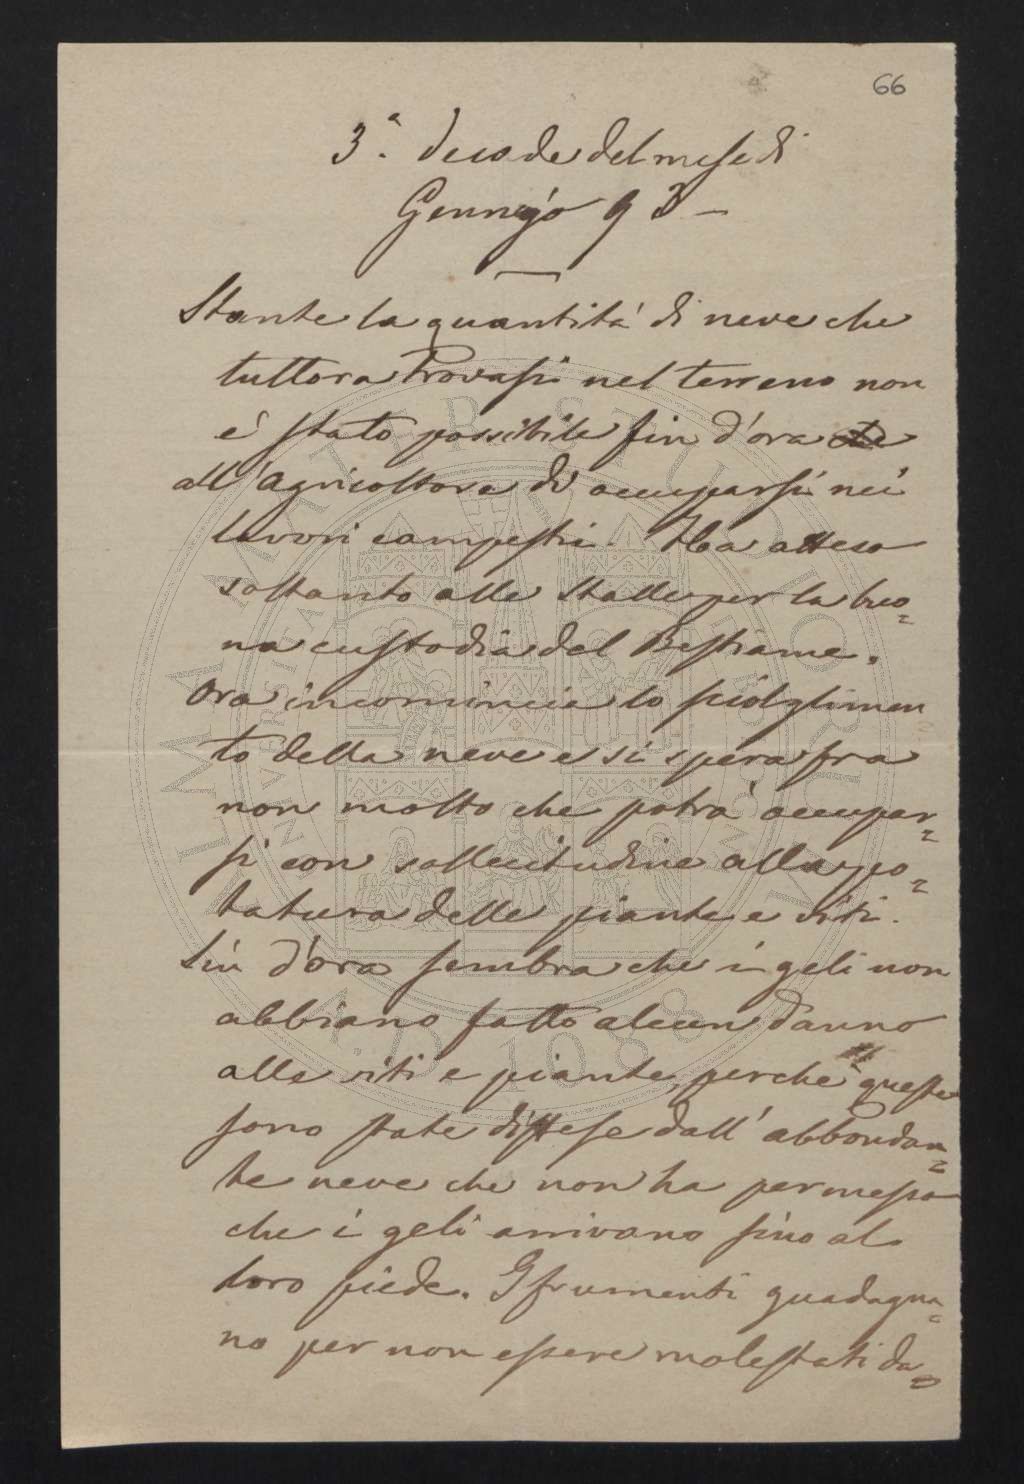 66
3.ª decade del mese di
Gennajo 93 —
Stante la quantità di neve che
tuttora trovasi nel terreno non
è stato possibile fin d'ora
all'Agricoltore di occuparsi nei
lavori campestri. Ha atteso
soltanto alle stalle per la buo=
na custodia del Bestiame.
Ora incomincia lo sciolglimen
to della neve e si spera fra
non molto che potrà occupar=
si con sollecitudine alla po=
tatura delle piante e viti.
Sin d'ora sembra che i geli non
abbiano fatto alcun danno
alle viti e piante, perchè queste
sono state diffese dall'abbondan=
te neve che non ha permesso
che i geli arrivano fino al
loro piede. I frumenti guadagna=
no per non essere molestati da=
ALMA MATER STUDIORUM
A.D. 1088